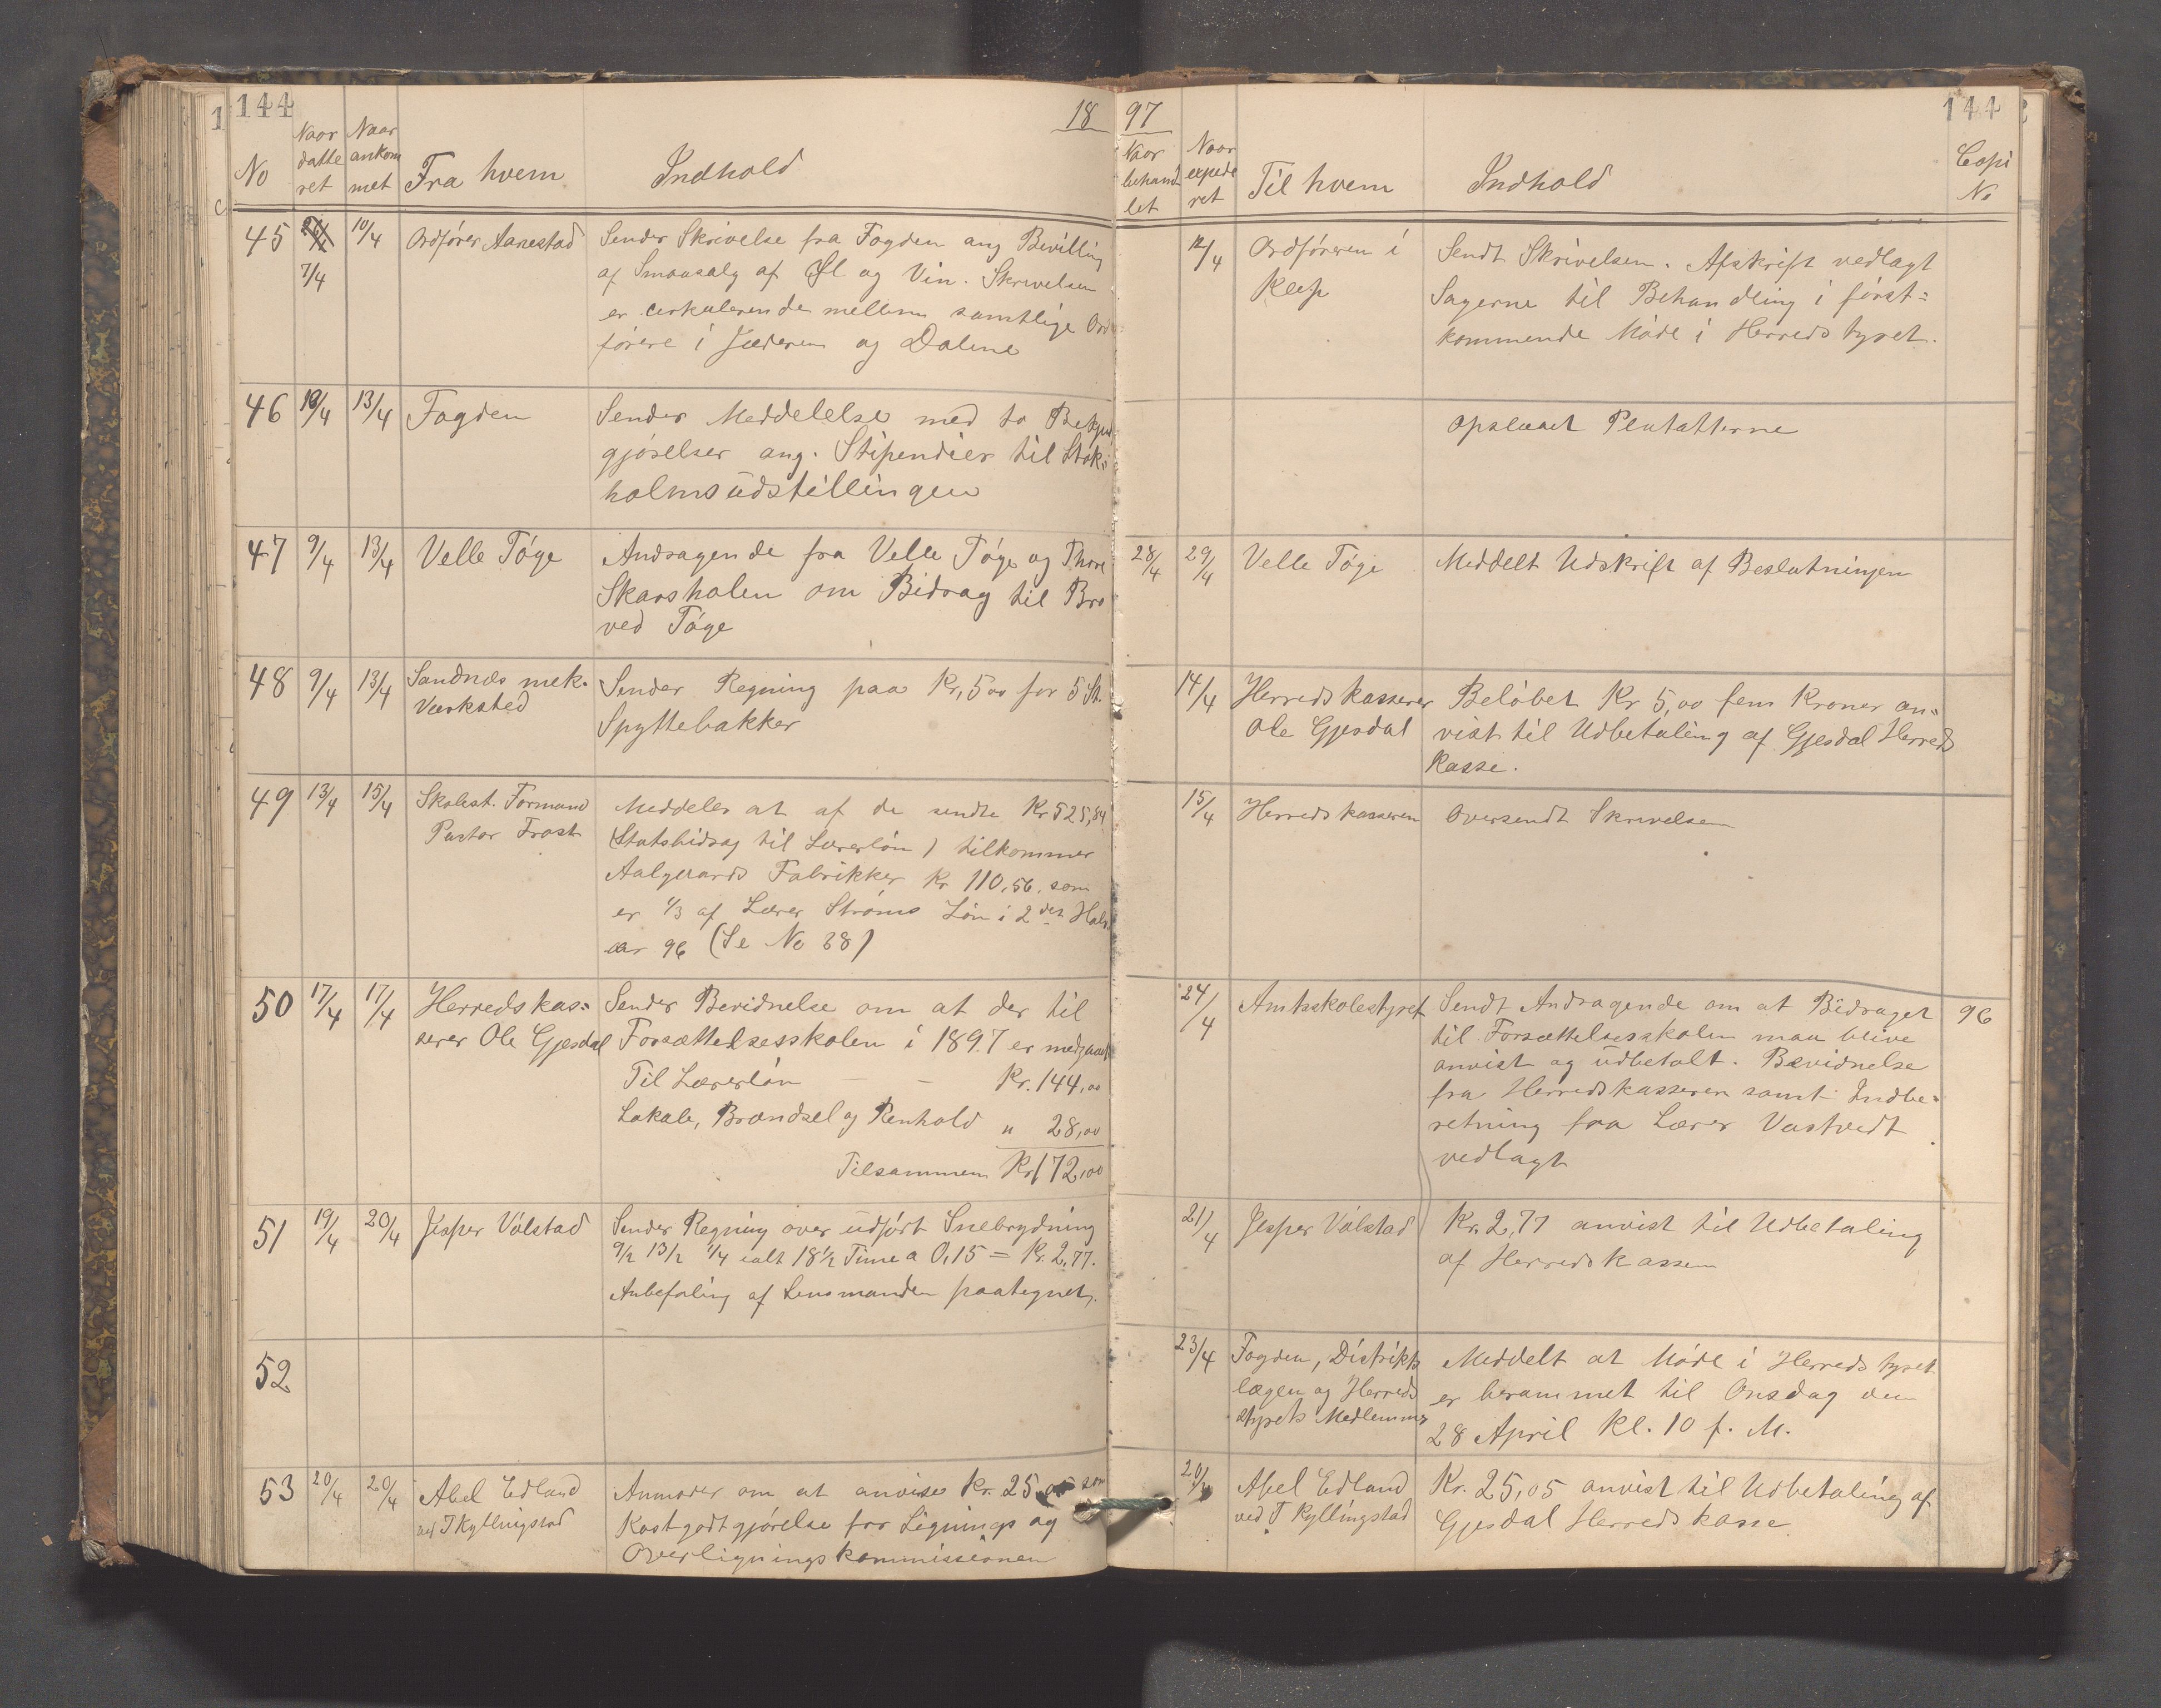 144
18
No
Naar datteret
Naar ankommet
Fra hvem
Indhold
45
7/4
10/4
Ordfører Aanestad
Sender Skrivelse fra Fogden ang Bevilling
af Smaasalg af Øl og Vin. Skrivelsen
er cirkulerende mellem samtlige Ord
førere i Jæderen og Dalene
46
10/4
13/4
Fogden
Sender Meddelelse med to Bekjendt
gjørelser ang. Stipendier til Stok=
holmsudstillingen
47
9/4
13/4
Velle Tøge
Andragende fra Velle Tøge og Thore
Skaarshalen om Bidrag til Bro
ved Tøge
48
9/4
13/4
Sandnæs mek.
Værksted
Sender Regning paa Kr. 5 00 for 5 St.
Spyttebakker
49
13/4
15/4
Skolest. Formand
Pastor Frost
Meddeler at af de sendte Kr 525,84
(Statsbidrag til Lærerløn) tilkommer
Aalgaards Fabrikker Kr 110,56, som
er 1/3 af Lærer Strøms Løn i 2det Halv
aar 96 (Se No 38)
50
17/4
17/4
Herredskas=
serer Ole Gjesdal
Sender Bevidnelse om at der til
Forsættelsesskolen i 1897 er medgaaet
Til Lærerløn - - Kr. 144,00
Lokale, Brændsel og Renhold " 28,00
Tilsammen Kr 172,00
51
19/4
20/4
Jesper Vølstad
Sender Regning over udført Snebrydning
9/2 13/2 1/4 ialt 18 1/2 Time a 0,15 = Kr. 2,77.
Anbefaling af Lensmanden paategnet.
52
53
20/4
20/4
Abel Edland
ved T Kyllingstad
Anmoder om at anvise Kr. 25,05 som
Kostgodtgjørelse for Lignings og
Overligningskommissionen
97
144
Naar behandlet
Naar expederet
Til hvem
Indhold
Copi No
12/4
Ordføreren i
Klep
Sendt Skrivelsen. Afskrift vedlagt
Sagerne til Behandling i først=
kommende Møde i Herredstyret.
Opslaaet Plakatterne
28/4
29/4
Velle Tøge
Meddelt Udskrift af Beslutningen
14/4
Herredskasserer
Ole Gjesdal
Beløbet Kr 5,00 fem Kroner an=
vist til Udbetaling af Gjesdal Herreds
Kasse.
15/4
Herredskasseren
Oversendt Skrivelsen
24/4
Amtsskolestyret
Sendt Andragende om at Bidraget
til Forsættelsesskolen maa blive
anvist og udbetalt. Bevidnelse
fra Herredskasseren samt Indbe=
retning fra Lærer Vastvedt
vedlagt
96
21/4
Jesper Vølstad
Kr. 2,77 anvist til Udbetaling
af Herredskassen
23/4
Fogden, Distrikts
lægen og Herreds
styrets Medlemmer
Meddelt at Møde i Herredstyret
er berammet til Onsdag den
28 April Kl. 10 f. M.
20/4
Abel Edland
ved T Kyllingstad
Kr. 25,05 anvist til Udbetaling af
Gjesdal Herredskasse.